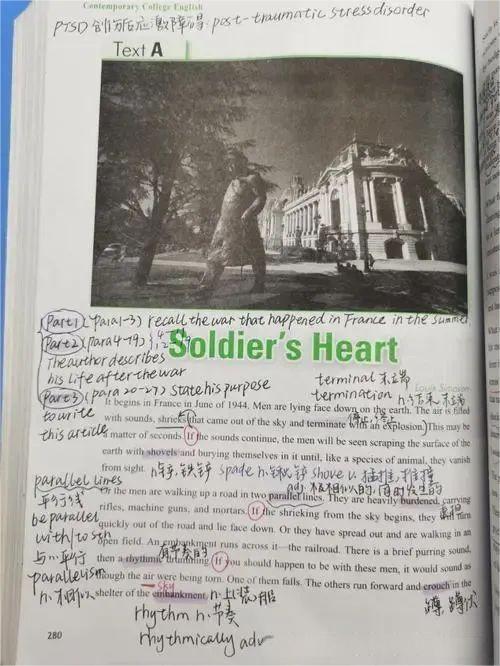 Contemporary College English
PTSD 创伤后应激障碍: post-traumatic stress disorder
Text A
Part1 (para1-3) recall the war that happened in France in the summer
Part2 (para4-19)
The author describes
his life after the war
Soldier's Heart
Part3 (para 20-27) state his purpose
to write
this article
terminal 末端
termination n.
Louis Simpson
It begins in France in June of 1944. Men are lying face down on the earth. The air is filled
with sounds, shrieks that came out of the sky and terminate with an explosion. This may be
a matter of seconds. If the sounds continue, the men will be seen scraping the surface of the
earth with shovels and burying themselves in it until, like a species of animal, they vanish
from sight.
n.铲,铁铲 spade n. shove v. 猛推
adj.
parallel lines
平行线
be parallel
with/to sth
与…平行
parallelism
n.
Or the men are walking up a road in two parallel lines. They are heavily burdened, carrying
rifles, machine guns, and mortars. If the shrieking from the sky begins, they will turn
quickly out of the road and lie face down. Or they have spread out and are walking in an
open field. An embankment runs across it—the railroad. There is a brief purring sound,
then a rhythmic drumming. If you should happen to be with these men, it would sound as
though the air were being torn. One of them falls. The others run forward and crouch in the
shelter of the embankment.
有节奏的
sky
蹲, 蹲伏
rhythm n.节奏
rhythmically adv
280